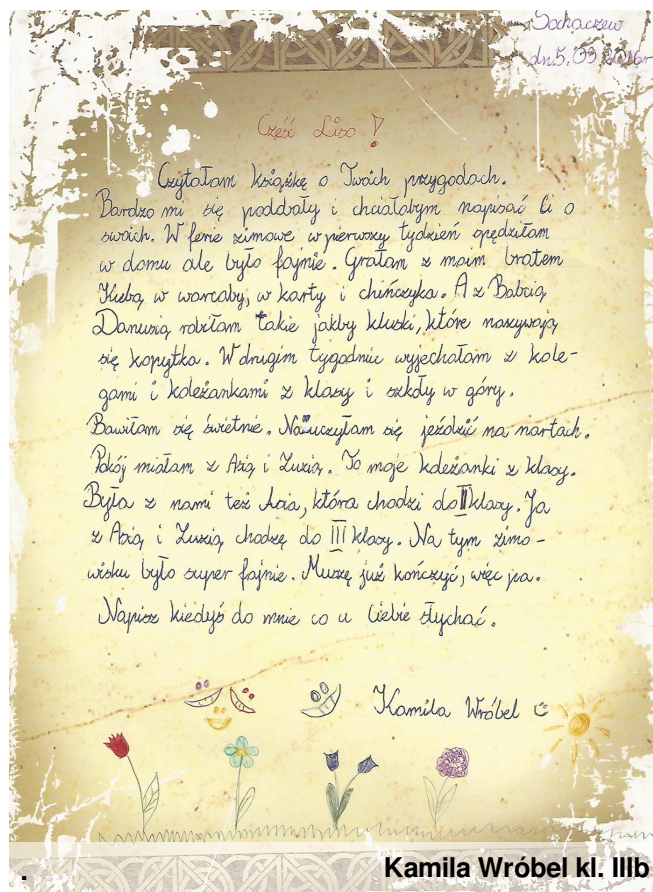 Sochaczew
dn.5.03.2016r
Cześć Liso !
Czytałam książkę o Twoich przygodach.
Bardzo mi się poddbały i chciałabym napisać Ci o
swoich. W ferie zimowe w pierwszy tydzień spędziłam
w domu ale było fajnie. Grałam z moim bratem
Kubą w warcaby, w karty i chińczyka. A z Babcią
Danusią robiłam takie jakby kluski, które nazywają
się kopytka. W drugim tygodniu wyjechałam z kole-
gami i koleżankami z klasy i szkoły w góry.
Bawiłam się świetnie. Nauczyłam się jeździć na nartach.
Pokój miałam z Asią i Zuzią. To moje koleżanki z klasy.
Była z nami też Asia, która chodzi do II klasy. Ja
z Asią i Zuzią chodzę do III klasy. Na tym zimo-
wisku było super fajnie. Muszę już kończyć, więc pa.
Napisz kiedyś do mnie co u Ciebie słychać.
Kamila Wróbel
.
Kamila Wróbel kl. IIIb